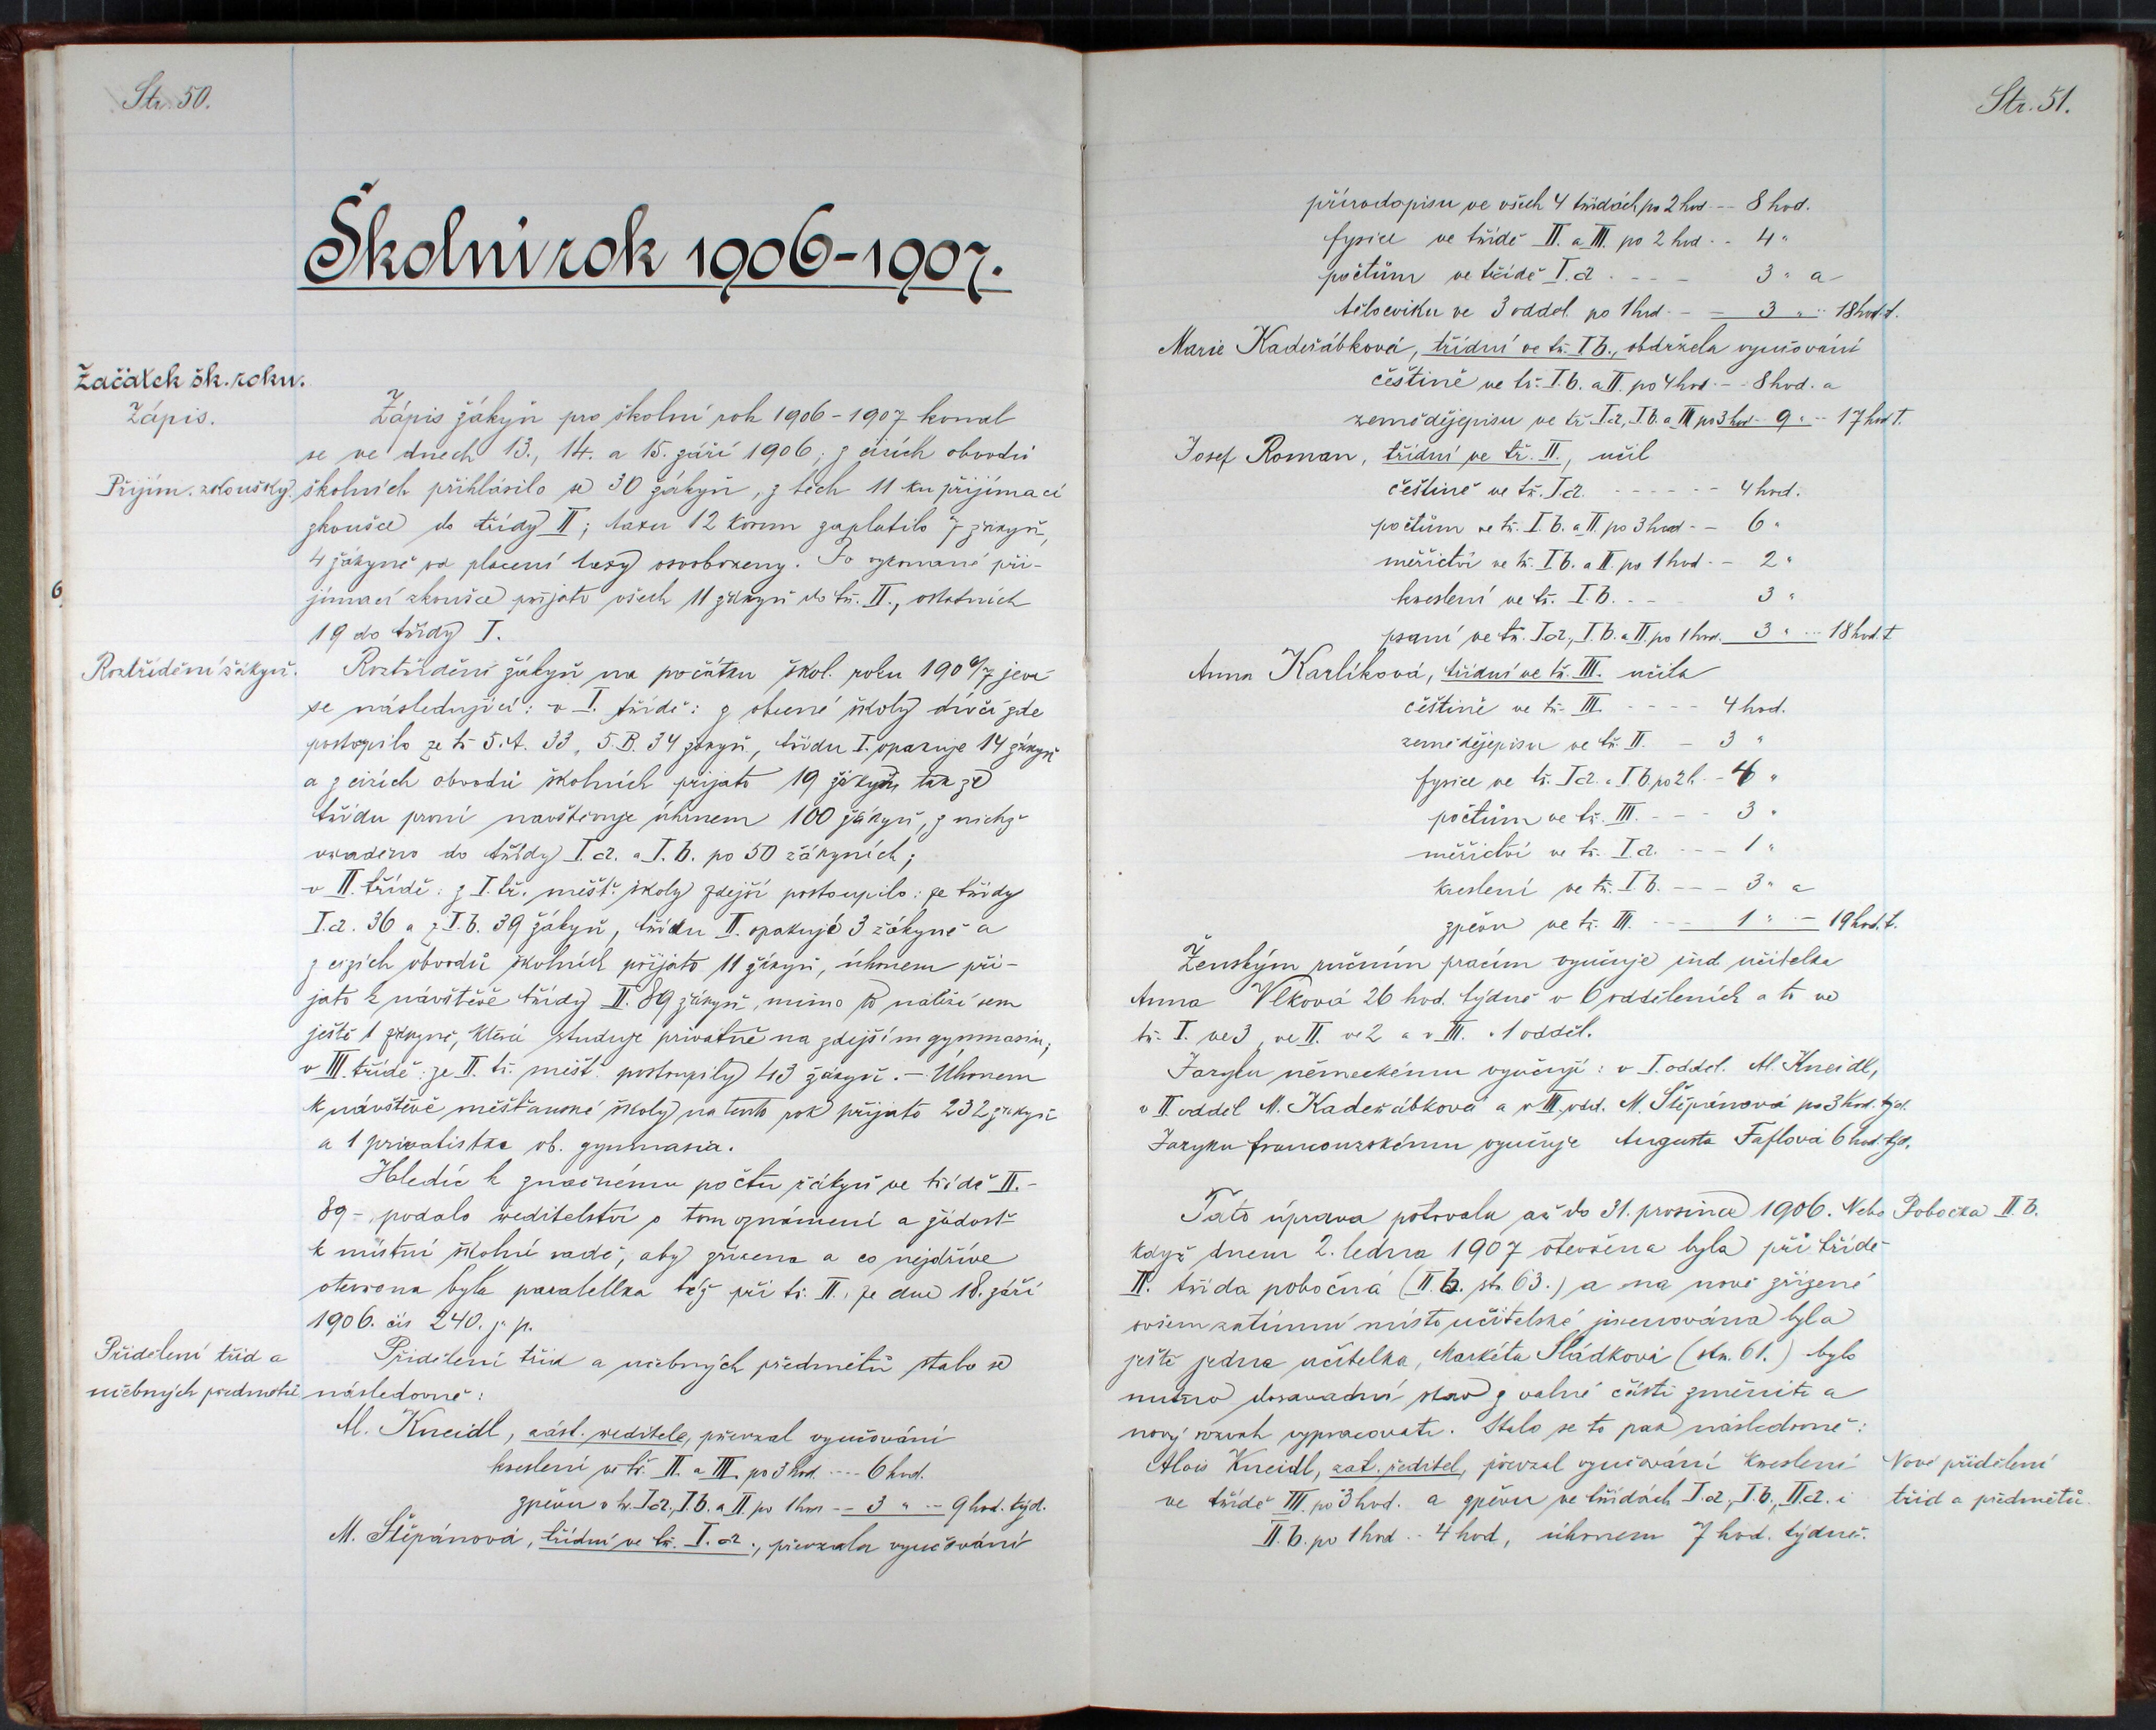 Str. 50.
Školní rok 1906-1907.
Začátek šk. roku.
Zápis.
Zápis žákyň pro školní rok 1906-1907 konal
se ve dnech 13., 14. a 15. září 1906; z cizích obvodů
Přijím. zkoušky.
školních přihlásilo se 30 žákyň, z těch 11 ku přijímací
zkoušce do třídy II; taxu 12 korun zaplatilo 7 žákyň,
4 žákyně od placení taxy osvobozeny. Po vykonané při-
jímací zkoušce přijato všech 11 žákyň do tř. II., ostatních
19 do třídy I.
Roztřídění žákyň.
Roztřídění žákyň na počátku škol. roku 1906/7 jeví
se následující: v I. třídě: z obecné školy dívčí zde
postoupilo ze tř. 5.A. 33, 5.B. 34 žákyň, třídu I. opakuje 14 žákyň
a z cizích obvodů školních přijato 19 žákyň, tak že
třídu první navštěvuje úhrnem 100 žákyň, z nichž
vřaděno do třídy I.a. a I.b. po 50 žákyních;
v II. třídě: z I. tř. měšť. školy zdejší postoupilo: ze třídy
I.a. 36 a z I.b. 39 žákyň, třídu II. opakují 3 žákyně a
z cizích obvodů školních přijato 11 žákyň, úhrnem při-
jato k návštěvě třídy II. 89 žákyň, mimo to náleží sem
ještě 1 žákyně, která studuje privatně na zdejším gymnasiu;
v III. třídě: ze II. tř. měšť. postoupily 43 žákyň. - Úhrnem
k návštěvě měšťanské školy na tento rok přijato 232 žákyň
a 1 privatistka ob. gymnasia.
Hledíc k značnému počtu žákyň ve třídě II. -
89 -, podalo ředitelství o tom oznámení a žádost
k místní školní radě, aby zřízena a co nejdříve
otevřena byla paralelka též při tř. II., ze dne 18. září
1906. čís 240. j. p.
Přidělení tříd a
učebných předmětů
Přidělení tříd a učebných předmětů stalo se
následovně:
Al. Kneidl, zást. ředitele, převzal vyučování
kreslení ve tř. II. a III. po 3 hod. ---- 6 hod.
zpěvu v tř. I.a., I.b. a II. po 1 hod -- 3 " -- 9 hod. týd.
M. Štěpánová, třídní ve tř. I. a., převzala vyučování
Str. 51.
přírodopisu ve všech 4 třídách po 2 hod -- 8 hod.
fysice ve třídě II. a III. po 2 hod - - 4 "
počtům ve třídě I.a - - - - 3 " a
tělocviku ve 3 odděl. po 1 hod - - 3 " -- 18 hod. t.
Marie Kadeřábková, třídní ve tř. I b., obdržela vyučování
češtině ve tř. I.b. a II. po 4 hod - - 8 hod. a
zemědějepisu ve tř. I.a, I.b. a III po 3 hod - 9 " -- 17 hod t.
Josef Roman, třídní ve tř. II., učil
češtině ve tř. I.a. - - - - - - 4 hod.
počtům ve tř. I.b. a II po 3 hod - - 6 "
měřictví ve tř. I.b. a II. po 1 hod - - 2 "
kreslení ve tř. I.b. - - 3 "
psaní ve tř. I.a., I.b. a II. po 1 hod. 3 " --- 18 hod. t
Anna Karlíková, třídní ve tř. III. učila
češtině ve tř. III. - - - - 4 hod.
zemědějepisu ve tř. II. - 3 "
fysice ve tř. I.a. a I.b. po 2 h. - 4 "
počtům ve tř. III. - - - 3 "
měřictví ve tř. I.a. - - - 1 "
kreslení ve tř. I b. - - - 3 " a
zpěvu ve tř. III. --- 1 " - - 19 hod. t.
Ženským ručním pracím vyučuje ind. učitelka
Anna Vlková 26 hod. týdně v 6 odděleních a to ve
tř. I. ve 3, ve II. ve 2 a v III. v 1 odděl.
Jazyku německému vyučují: v I. odděl. Al. Kneidl,
v II odděl M. Kadeřábková a v III. odd. M. Štěpánová po 3 hod. týd.
Jazyku francouzskému vyučuje Augusta Faflová 6 hod. týd.
Tato úprava potrvala až do 31. prosince 1906. Nebo
Pobočka II. b.
když dnem 2. ledna 1907 otevřena byla při třídě
II. třída pobočná (II b. str. 63.) a na nově zřízené
ovšem zatímní místo učitelské jmenována byla
ještě jedna učitelka, Markéta Sládková (str. 61.) bylo
nutno dosavadní stav z valné části změniti a
nový rozvrh vypracovati. Stalo se to pak následovně:
Alois Kneidl, zat. ředitel, převzal vyučování kreslení
Nové přidělení
ve třídě III. po 3 hod. a zpěvu ve třídách I.a., I.b., II.a. i
tříd a předmětů.
II.b. po 1 hod - - 4 hod, úhrnem 7 hod. týdně.